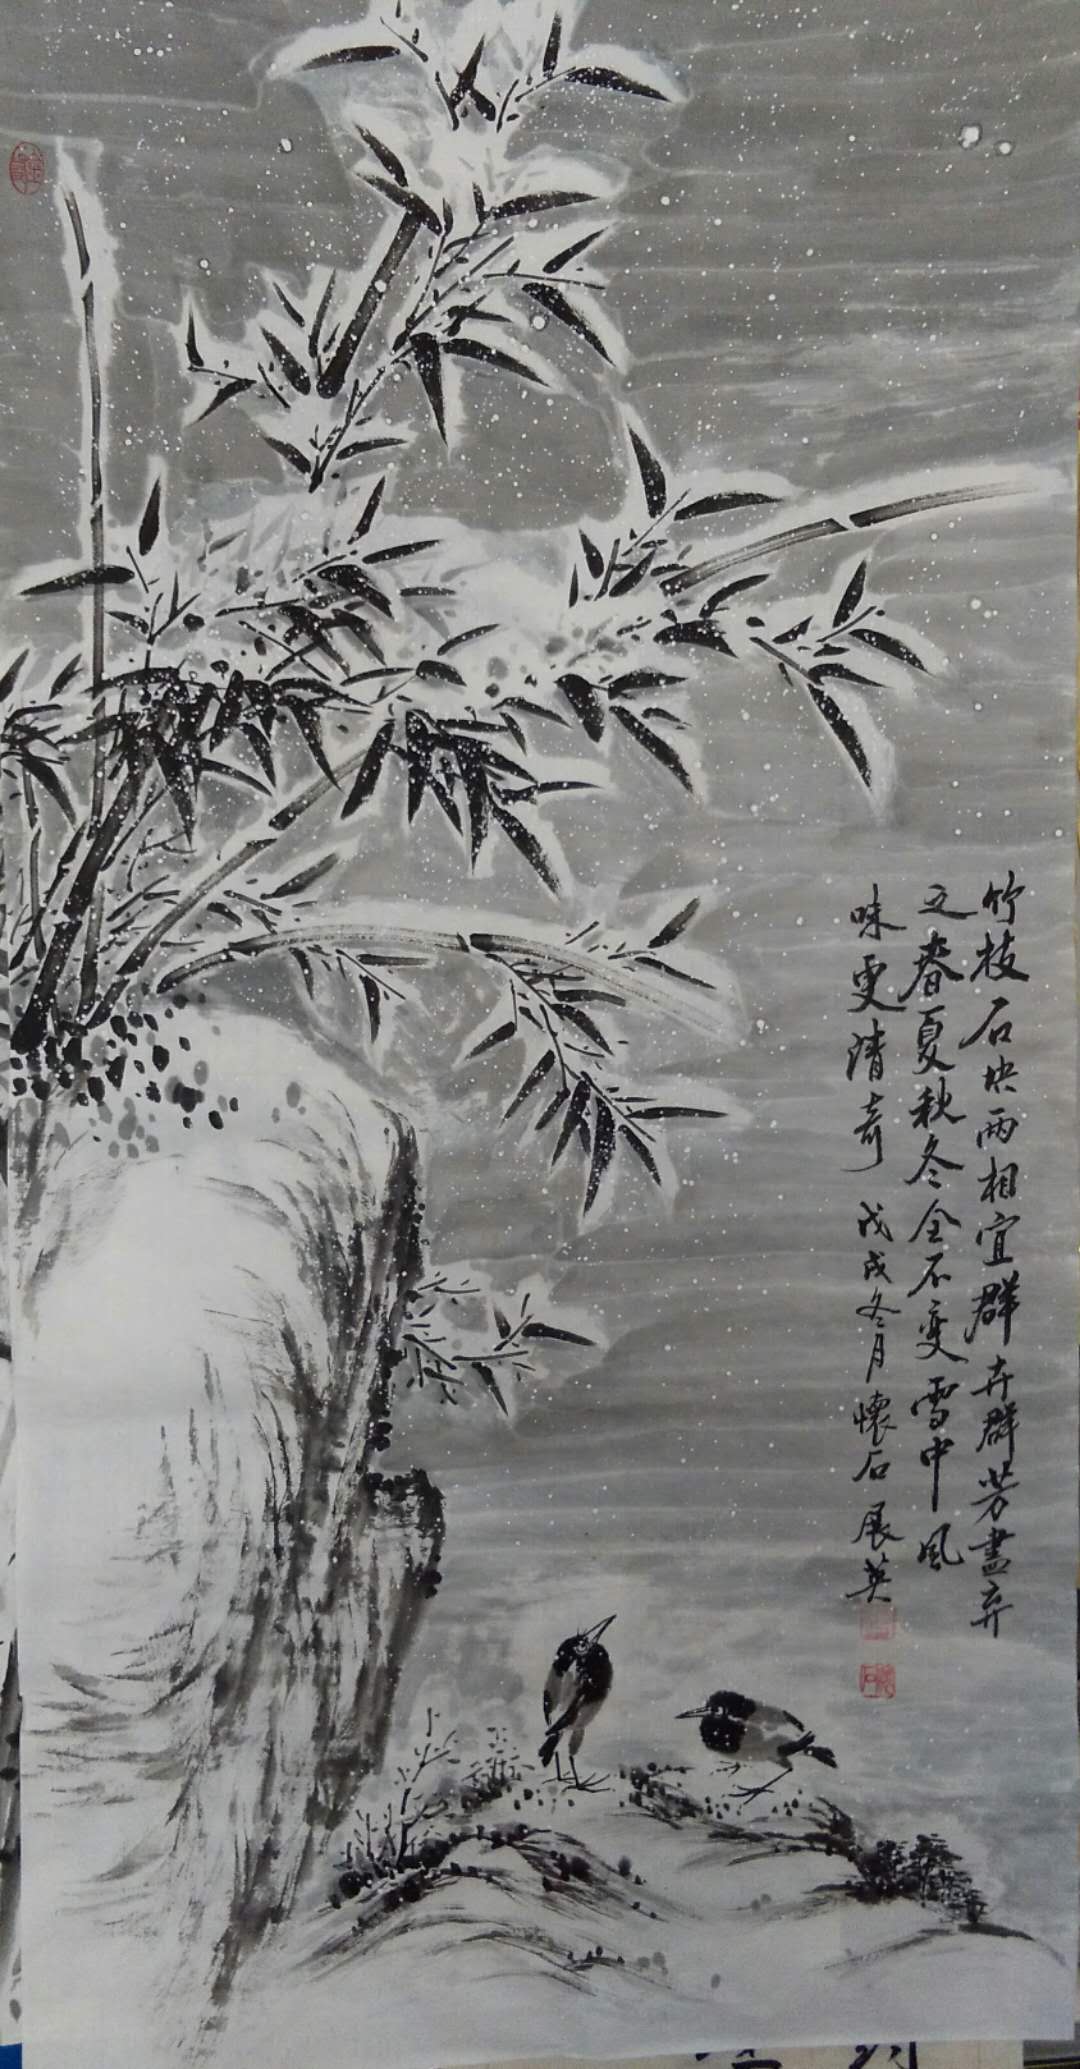 竹枝石块两相宜群卉群芳盡弃
之春夏秋冬全不变雪中风
味更清奇 戊戌冬月懷石 展英